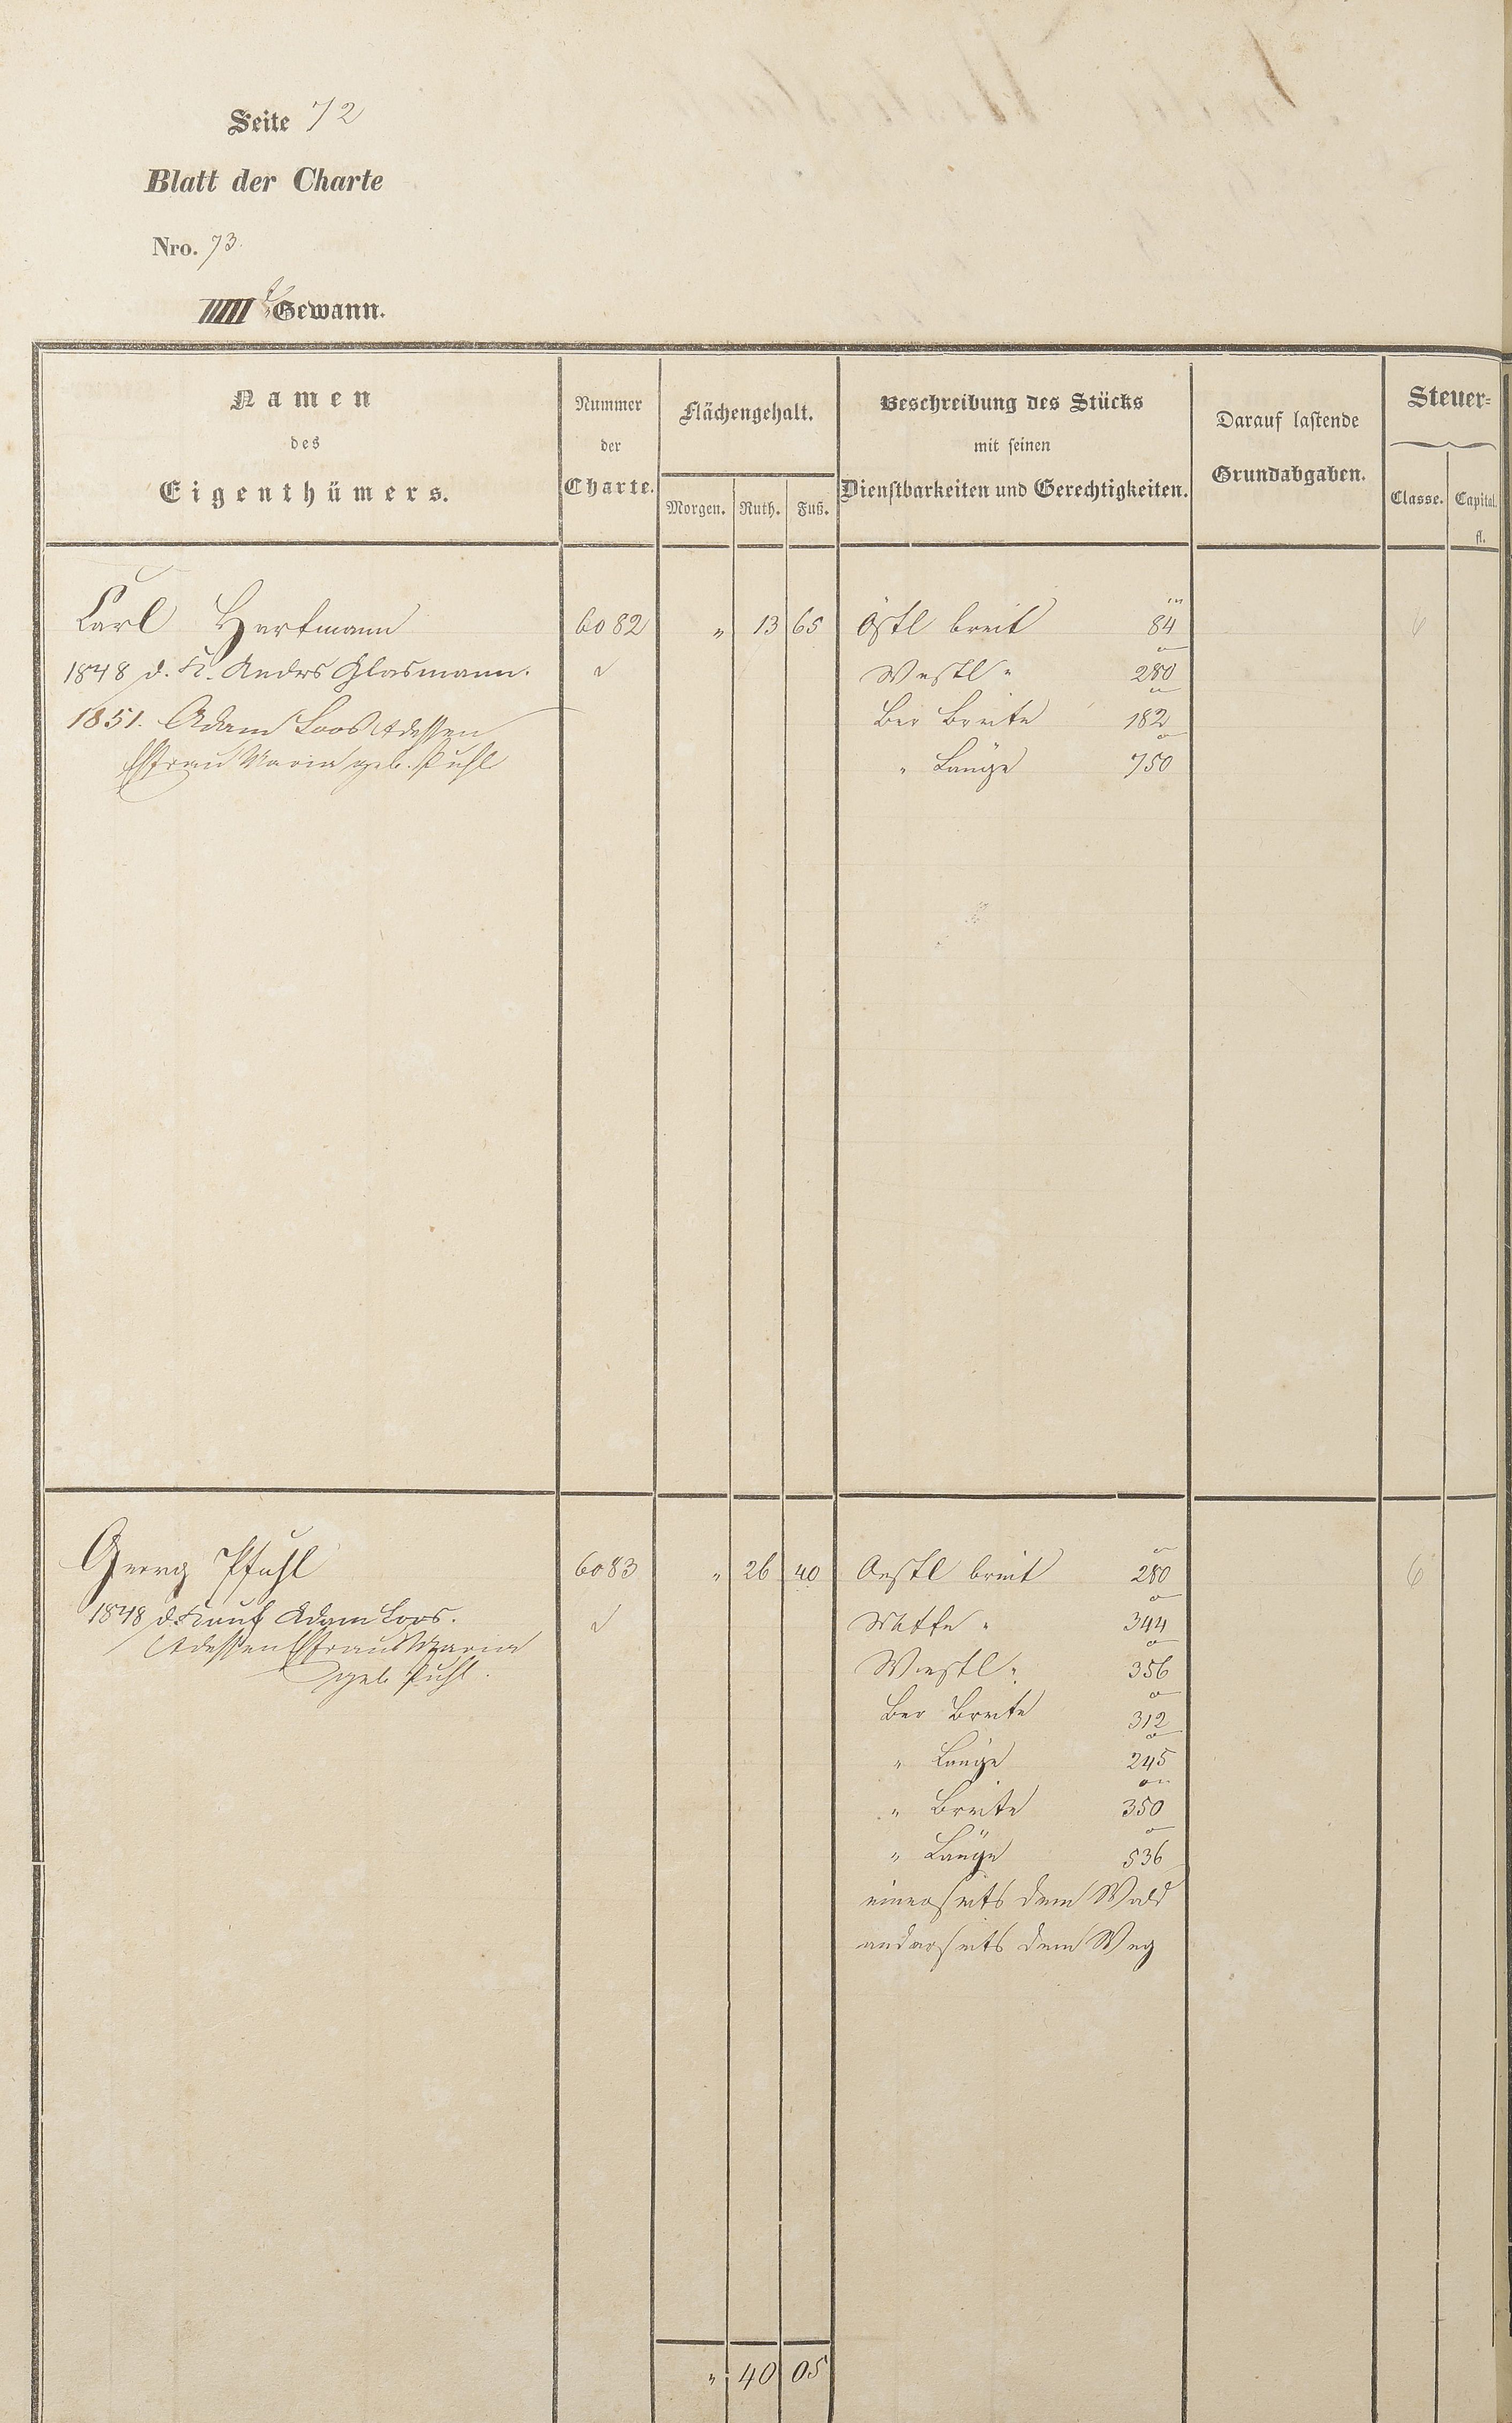 Seite 72
Blatt der Charte
Nro. 73.
Gewann.
Namen
des
Eigenthümers.
Nummer
der
Charte.
Flächengehalt.
Morgen. Ruth. Fuß.
Beschreibung des Stücks
mit seinen
Dienstbarkeiten und Gerechtigkeiten.
Darauf lastende
Grundabgaben.
Steuer=
Classe. Capital.
fl.
Carl Hartmann 6082 " 13 65 Östl breit 84 6
1848 d. K. Andrs Glasmann. Westl " 280
1851. Adam Loos & dessen Ber Breite 182
Ehfrau Maria geb. Puhl " Länge 750
Georg Pfuhl 6083 " 26 40 Oestl breit 280 6
1848 d. Kauf Adam Loos. Mitte " 344
& dessen Ehfrau Maria Westl " 356
geb. Puhl. Ber Breite 312
" Länge 245
" Breite 350
" Länge 536
einerseits dem Wald
anderseits dem Weg
" 40 05